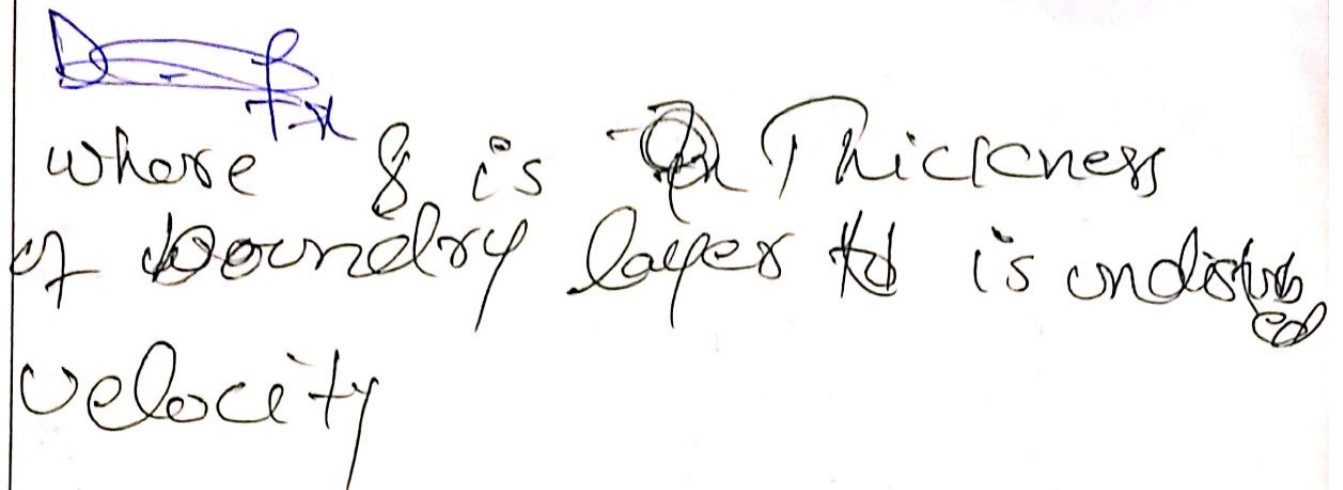 where δ is Thickness
of boundry layer is undisturb
ed
velocity